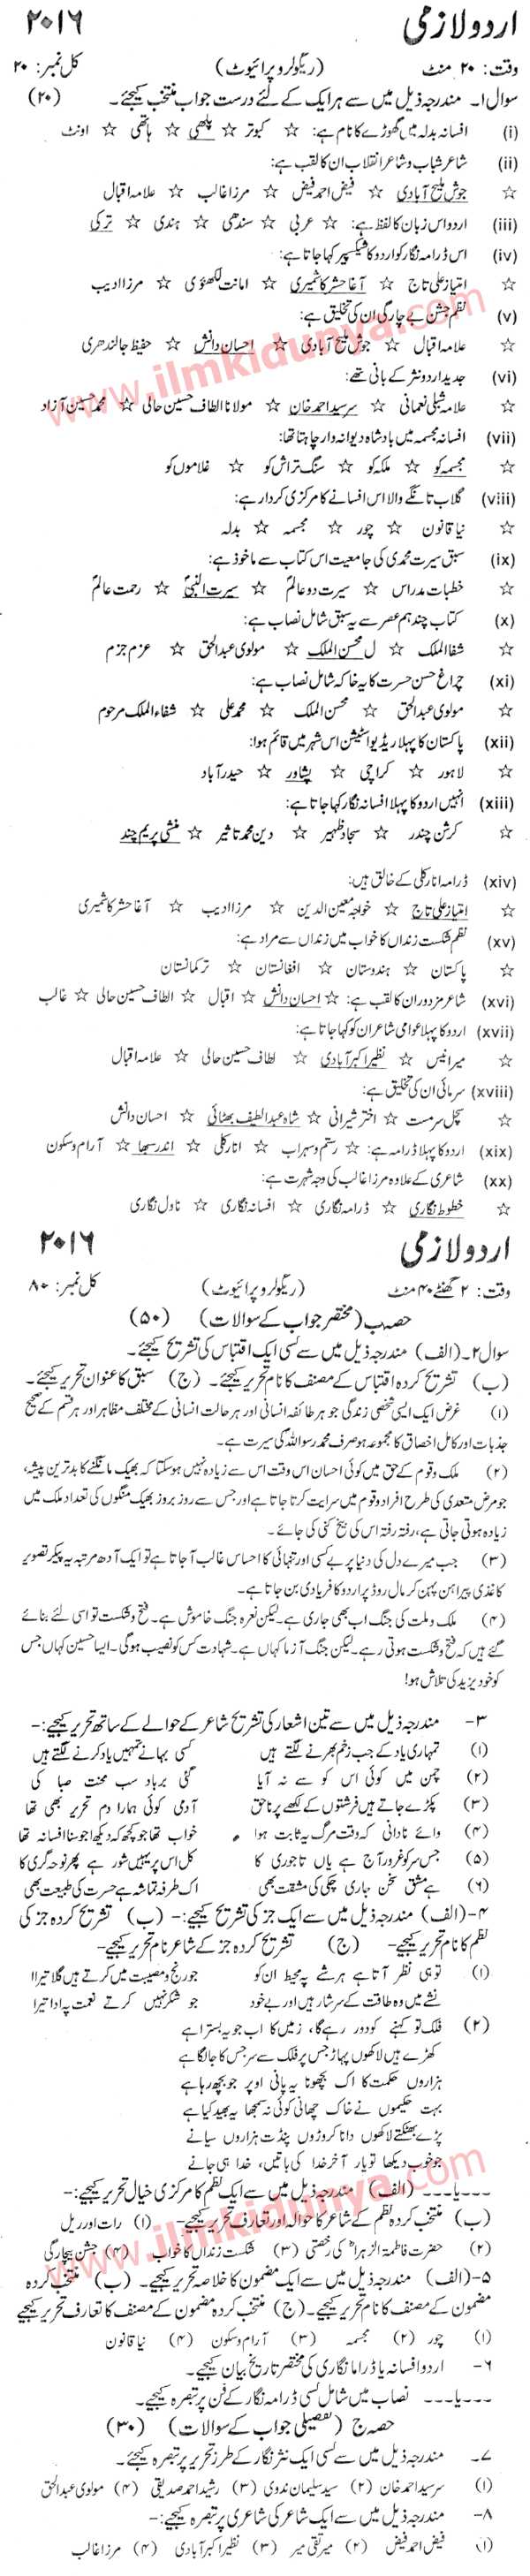 اردو لازمی ۲۰۱۶
وقت: ۲۰ منٹ (ریگولر و پرائیوٹ) کل نمبر: ۲۰
سوال ۱۔ مندرجہ ذیل میں سے ہر ایک کے لئے درست جواب منتخب کیجئے۔ (۲۰)
(i) افسانہ بدلہ میں گھوڑے کا نام ہے: ☆ کبوتر ☆ پلھی ☆ ہاتھی ☆ اونٹ
(ii) شاعر شباب و شاعر انقلاب ان کا لقب ہے:
☆ جوش ملیح آبادی ☆ فیض احمد فیض ☆ مرزا غالب ☆ علامہ اقبال
(iii) اردو اس زبان کا لفظ ہے: ☆ عربی ☆ سندھی ☆ ہندی ☆ ترکی
(iv) اس ڈرامہ نگار کو اردو کا شیکسپیر کہا جاتا ہے:
☆ امتیاز علی تاج ☆ آغا حشر کاشمیری ☆ امانت لکھنؤی ☆ مرزا ادیب
(v) نظم جشن بے چارگی ان کی تخلیق ہے:
☆ علامہ اقبال ☆ جوش ملیح آبادی ☆ احسان دانش ☆ حفیظ جالندھری
(vi) جدید اردو نثر کے بانی تھے:
☆ علامہ شبلی نعمانی ☆ سرسید احمد خان ☆ مولانا الطاف حسین حالی ☆ محمد حسین آزاد
(vii) افسانہ مجسمہ میں بادشاہ دیوانہ وار چاہتا تھا:
☆ مجسمہ کو ☆ ملکہ کو ☆ سنگ تراش کو ☆ غلاموں کو
(viii) گلاب تانگے والا اس افسانے کا مرکزی کردار ہے:
☆ نیا قانون ☆ چور ☆ مجسمہ ☆ بدلہ
(ix) سبق سیرت محمدی کی جامعیت اس کتاب سے ماخوذ ہے:
☆ خطبات مدراس ☆ سیرت دو عالمؐ ☆ سیرت النبیؐ ☆ رحمت عالمؐ
(x) کتاب چند ہم عصر سے یہ سبق شامل نصاب ہے:
☆ شفا الملک ☆ ل محسن الملک ☆ مولوی عبدالحق ☆ عزم جزم
(xi) چراغ حسن حسرت کا یہ خاکہ شامل نصاب ہے:
☆ مولوی عبدالحق ☆ محسن الملک ☆ محمد علی ☆ شفاء الملک مرحوم
(xii) پاکستان کا پہلا ریڈیو اسٹیشن اس شہر میں قائم ہوا:
☆ لاہور ☆ کراچی ☆ پشاور ☆ حیدرآباد
(xiii) انہیں اردو کا پہلا افسانہ نگار کہا جاتا ہے:
☆ کرشن چندر ☆ سجاد ظہیر ☆ دین محمد تاثیر ☆ منشی پریم چند
(xiv) ڈرامہ انار کلی کے خالق ہیں:
☆ امتیاز علی تاج ☆ خواجہ معین الدین ☆ مرزا ادیب ☆ آغا حشر کاشمیری
(xv) نظم شکست زنداں کا خواب میں زنداں سے مراد ہے:
☆ پاکستان ☆ ہندوستان ☆ افغانستان ☆ ترکمانستان
(xvi) شاعر مزدوراں کا لقب ہے: ☆ احسان دانش ☆ اقبال ☆ الطاف حسین حالی ☆ غالب
(xvii) اردو کا پہلا عوامی شاعر ان کو کہا جاتا ہے:
☆ میر انیس ☆ نظیر اکبر آبادی ☆ لطاف حسین حالی ☆ علامہ اقبال
(xviii) سر مائی ان کی تخلیق ہے:
☆ سچل سرمست ☆ اختر شیرانی ☆ شاہ عبدالطیف بھٹائی ☆ احسان دانش
(xix) اردو کا پہلا ڈرامہ ہے: ☆ رستم و سہراب ☆ انار کلی ☆ اندر سبھا ☆ آرام و سکون
(xx) شاعری کے علاوہ مرزا غالب کی وجہ شہرت ہے:
☆ خطوط نگاری ☆ ڈرامہ نگاری ☆ افسانہ نگاری ☆ ناول نگاری
اردو لازمی ۲۰۱۶
وقت: ۲ گھنٹے ۴۰ منٹ (ریگولر و پرائیوٹ) کل نمبر: ۸۰
حصہ ب (مختصر جواب کے سوالات) (۵۰)
سوال ۲۔ (الف) مندرجہ ذیل میں سے کسی ایک اقتباس کی تشریح کیجئے۔
(ب) تشریح کردہ اقتباس کے مصنف کا نام تحریر کیجئے۔ (ج) سبق کا عنوان تحریر کیجئے۔
(۱) غرض ایک ایسی شخصی زندگی جو ہر طائفہ انسانی اور ہر حالت انسانی کے مختلف مظاہر اور ہر قسم کے صحیح
جذبات اور کامل اخصاق کا مجموعہ ہو صرف محمد رسول اللہ کی سیرت ہے۔
(۲) ملک و قوم کے حق میں کوئی احسان اس وقت اس سے زیادہ نہیں ہو سکتا کہ بھیک مانگنے کا بدترین پیشہ،
جو مرض متعدی کی طرح افراد قوم میں سرایت کرتا جاتا ہے اور جس سے روز بروز بھیک منگوں کی تعداد ملک میں
زیادہ ہوتی جاتی ہے، رفتہ رفتہ اس کی بیخ کنی کی جائے۔
(۳) جب میرے دل کی دنیا پر بے کسی اور تنہائی کا احساس غالب آ جاتا ہے تو ایک آدھ مرتبہ یہ پیکر تصویر
کاغذی پیراہن پہن کر مال روڈ پر اردو کا فریادی بن جاتا ہے۔
(۴) ملک و ملت کی جنگ اب بھی جاری ہے۔ لیکن نعرہ جنگ خاموش ہے۔ فتح و شکست تو اسی لئے بنائے
گئے ہیں کہ فتح و شکست ہوتی رہے۔ لیکن جنگ آزما کہاں ہے۔ شہادت کس کو نصیب ہو گی۔ ایسا حسین کہاں جس
کو خود یزید کی تلاش ہو!
۳- مندرجہ ذیل میں سے تین اشعار کی تشریح شاعر کے حوالے کے ساتھ تحریر کیجیے:-
(۱) تمہاری یاد کے جب زخم بھرنے لگتے ہیں کسی بہانے تمہیں یاد کرنے لگتے ہیں
(۲) چمن میں کوئی اس کو سے نہ آیا گئی برباد سب محنت صبا کی
(۳) پکڑے جاتے ہیں فرشتوں کے لکھے پر ناحق آدمی کوئی ہمارا دم تحریر بھی تھا
(۴) وائے نادانی کہ وقت مرگ یہ ثابت ہوا خواب تھا جو کچھ کہ دیکھا جو سنا افسانہ تھا
(۵) جس سر کو غرور آج ہے یاں تاجوری کا کل اس پر یہیں شور ہے پھر نوحہ گری کا
(۶) ہے مشق سخن جاری چکی کی مشقت بھی اک طرفہ تماشہ ہے حسرت کی طبیعت بھی
۴- (الف) مندرجہ ذیل میں سے ایک جز کی تشریح کیجیے:- (ب) تشریح کردہ جز کی
نظم کا نام تحریر کیجیے- (ج) تشریح کردہ جز کے شاعر نام تحریر کیجیے-
(۱) تو ہی نظر آتا ہے ہر شے پہ محیط ان کو جو رنج و مصیبت میں کرتے ہیں گلا تیرا
نشے میں وہ طاقت کے سرشار ہیں اور بے خود جو شکر نہیں کرتے نعمت پہ ادا تیرا
(۲) فلک تو کہنے کو دور رہے گا، زمیں کا اب جو یہ بسترا ہے
کھڑے ہیں لاکھوں پہاڑ جس پر فلک سے سر جس کا جا لگا ہے
ہزاروں حکمت کا اک بچھونا یہ پانی اوپر جو بچھ رہا ہے
بہت حکیموں نے خاک چھانی کوئی نہ سمجھا یہ بھید کیا ہے
پڑے بھٹکتے لاکھوں دانا کروڑوں پنڈت ہزاروں سیانے
جو خوب دیکھا تو یار آخر خدا کی باتیں، خدا ہی جانے
----یا---- (الف) مندرجہ ذیل میں سے ایک نظم کا مرکزی خیال تحریر کیجیے:-
(ب) منتخب کردہ نظم کے شاعر کا حوالہ اور تعارف تحریر کیجیے- (۱) رات اور ریل
(۲) حضرت فاطمۃ الزہراؓ کی رخصتی (۳) شکست زنداں کا خواب (۴) جشن بیچارگی
۵- (الف) مندرجہ ذیل میں سے ایک مضمون کا خلاصہ تحریر کیجیے۔ (ب) منتخب کردہ
مضمون کے مصنف کا نام تحریر کیجیے۔ (ج) منتخب کردہ مضمون کے مصنف کا تعارف تحریر کیجیے
(۱) چور (۲) مجسمہ (۳) آرام و سکون (۴) نیا قانون
۶- اردو افسانہ یا ڈراما نگاری کی مختصر تاریخ بیان کیجیے۔
----یا---- نصاب میں شامل کسی ڈرامہ نگار کے فن پر تبصرہ کیجیے۔
حصہ ج (تفصیلی جواب کے سوالات) (۳۰)
۷۔ مندرجہ ذیل میں سے کسی ایک نثر نگار کے طرز تحریر پر تبصرہ کیجئے۔
(۱) سرسید احمد خان (۲) سید سلیمان ندوی (۳) رشید احمد صدیقی (۴) مولوی عبدالحق
۸- مندرجہ ذیل میں سے ایک شاعر کی شاعری پر تبصرہ کیجیے:-
(۱) فیض احمد فیض (۲) میر تقی میر (۳) نظیر اکبر آبادی (۴) مرزا غالب
www.ilmkidunya.com
www.ilmkidunya.com